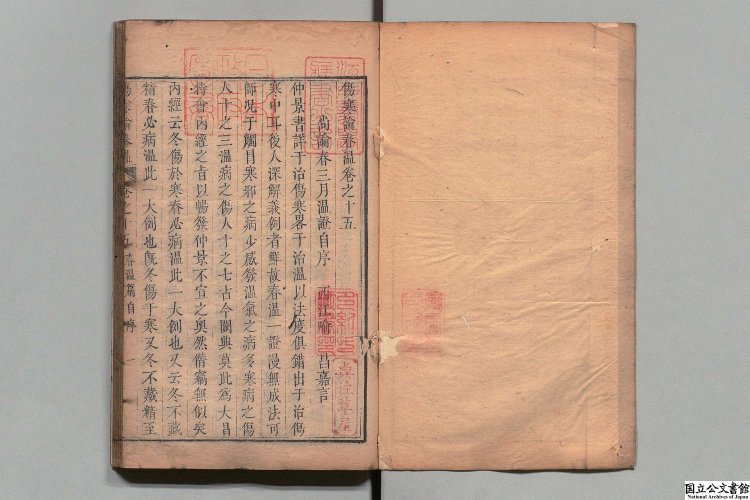 傷寒論春溫卷之十五
尚論春三月溫證自序　西江喻　昌嘉言
仲景書詳于治傷寒畧于治溫以法度俱錯出于治傷
寒中耳後人深解義例者鮮故春溫一證漫無成法可
師況于觸目寒邪之病少感發溫氣之病多寒病之傷
人十之三溫病之傷人十之七古今關典莫此爲大昌
特會內經之旨以暢發仲景不宣之奧然僭竊無似矣
內經云冬傷於寒春必病溫此一大例也又云冬不藏
精春必病溫此一大例也旣冬傷于寒又冬不藏精至
傷寒論春溫　卷之十五　春溫篇自序　一
國立公文書館
National Archives of Japan